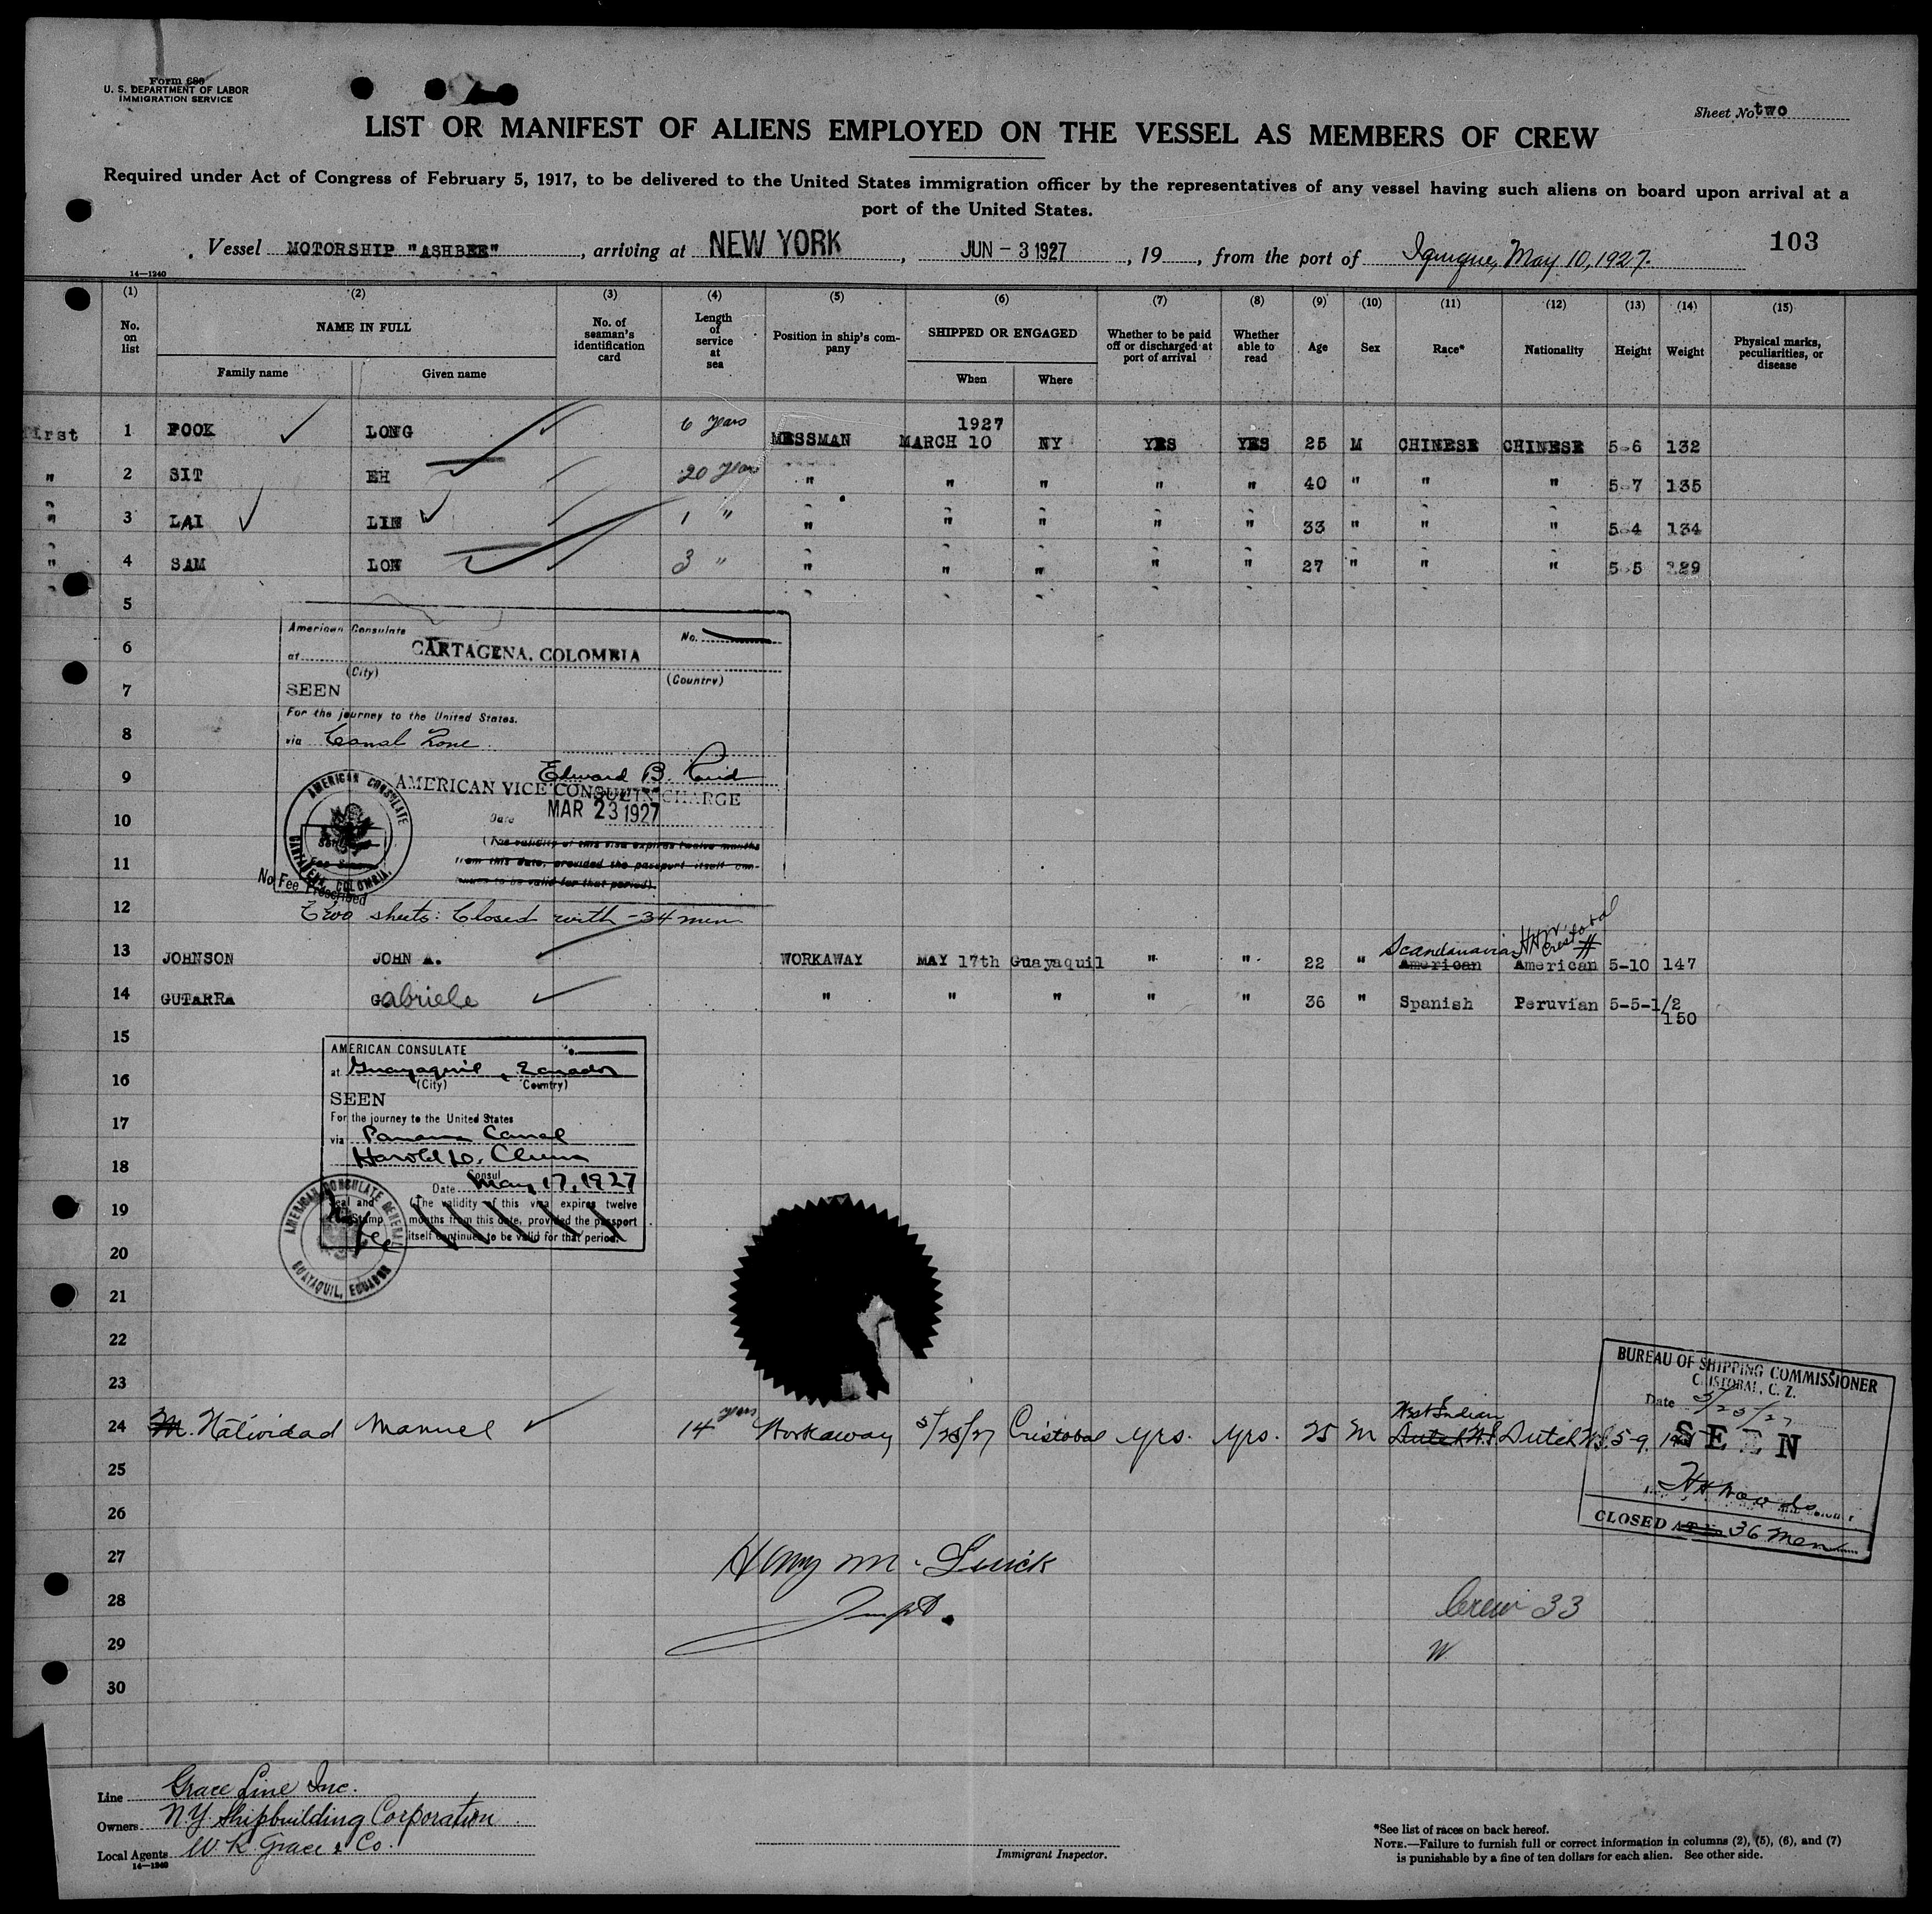 Form 680
U. S. DEPARTMENT OF LABOR
IMMIGRATION SERVICE
Sheet No. two
LIST OR MANIFEST OF ALIENS EMPLOYED ON THE VESSEL AS MEMBERS OF CREW
Required under Act of Congress of February 5, 1917, to be delivered to the United States immigration officer by the representatives of any vessel having such aliens on board upon arrival at a
port of the United States.
103
Vessel MOTORSHIP "ASHBEE", arriving at NEW YORK, JUN - 3 1927, 19, from the port of Iquique, May 10, 1927.
14—1240
(1) (2) (3) (4) (5) (6) (7) (8) (9) (10) (11) (12) (13) (14) (15)
No. on list NAME IN FULL Family name Given name No. of seaman's identification card Length of service at sea Position in ship's company SHIPPED OR ENGAGED When Where Whether to be paid off or discharged at port of arrival Whether able to read Age Sex Race* Nationality Height Weight Physical marks, peculiarities, or disease
1927
first 1 FOOK LONG 6 years MESSMAN MARCH 10 NY YES YES 25 M CHINESE CHINESE 5-6 132
" 2 SIT EH 20 years " " " " " 40 " " " 5-7 135
" 3 LAI LIN 1 " " " " " " 33 " " " 5-4 134
" 4 SAM LON 3 " " " " " " 27 " " " 5-5 129
5
6
7
8
9
10
11
12
American Consulate No.
at CARTAGENA, COLOMBIA
(City) (Country)
SEEN
For the journey to the United States.
via Canal Zone
Edward B.
AMERICAN VICE CONSUL IN CHARGE
Date MAR 23 1927
(The validity of this visa expires twelve months
from this date, provided the passport itself con-
tinues to be valid for that period).
AMERICAN CONSULATE
CARTAGENA, COLOMBIA.
No Fee Prescribed
Two sheets: Closed with -34 men
HHW. Cristobal
Scandinavian
13 JOHNSON JOHN A. WORKAWAY MAY 17th Guayaquil " " 22 " American American 5-10 147
14 GUTARRA Gabriele " " " " " 36 " Spanish Peruvian 5-5-1/2 150
15
16
17
18
19
20
21
22
23
AMERICAN CONSULATE
at Guayaquil, Ecuador
(City) (Country)
SEEN
For the journey to the United States
via Panama Canal
Harold D. Clum
Consul
Date May 17, 1927
Seal and Fee Stamp
(The validity of this visa expires twelve
months from this date, provided the passport
itself continues to be valid for that period.
No fee
AMERICAN CONSULATE GENERAL
GUAYAQUIL, ECUADOR
West Indian
24 M. Natividad Manuel 14 years Workaway 5/25/27 Cristobal yrs. yrs. 25 M Dutch W.I. Dutch W.I. 5-9
BUREAU OF SHIPPING COMMISSIONER
CRISTOBAL, C. Z.
Date 5/25/27
SEEN
HH Woods
CLOSED 36 Men
25
26
27
28
29
30
Henry M.
Inspt.
Crew 33
W
Line Grace Line Inc.
Owners N.Y. Shipbuilding Corporation
Local Agents W R Grace & Co.
14—1240
Immigrant Inspector.
*See list of races on back hereof.
NOTE.—Failure to furnish full or correct information in columns (2), (5), (6), and (7)
is punishable by a fine of ten dollars for each alien. See other side.